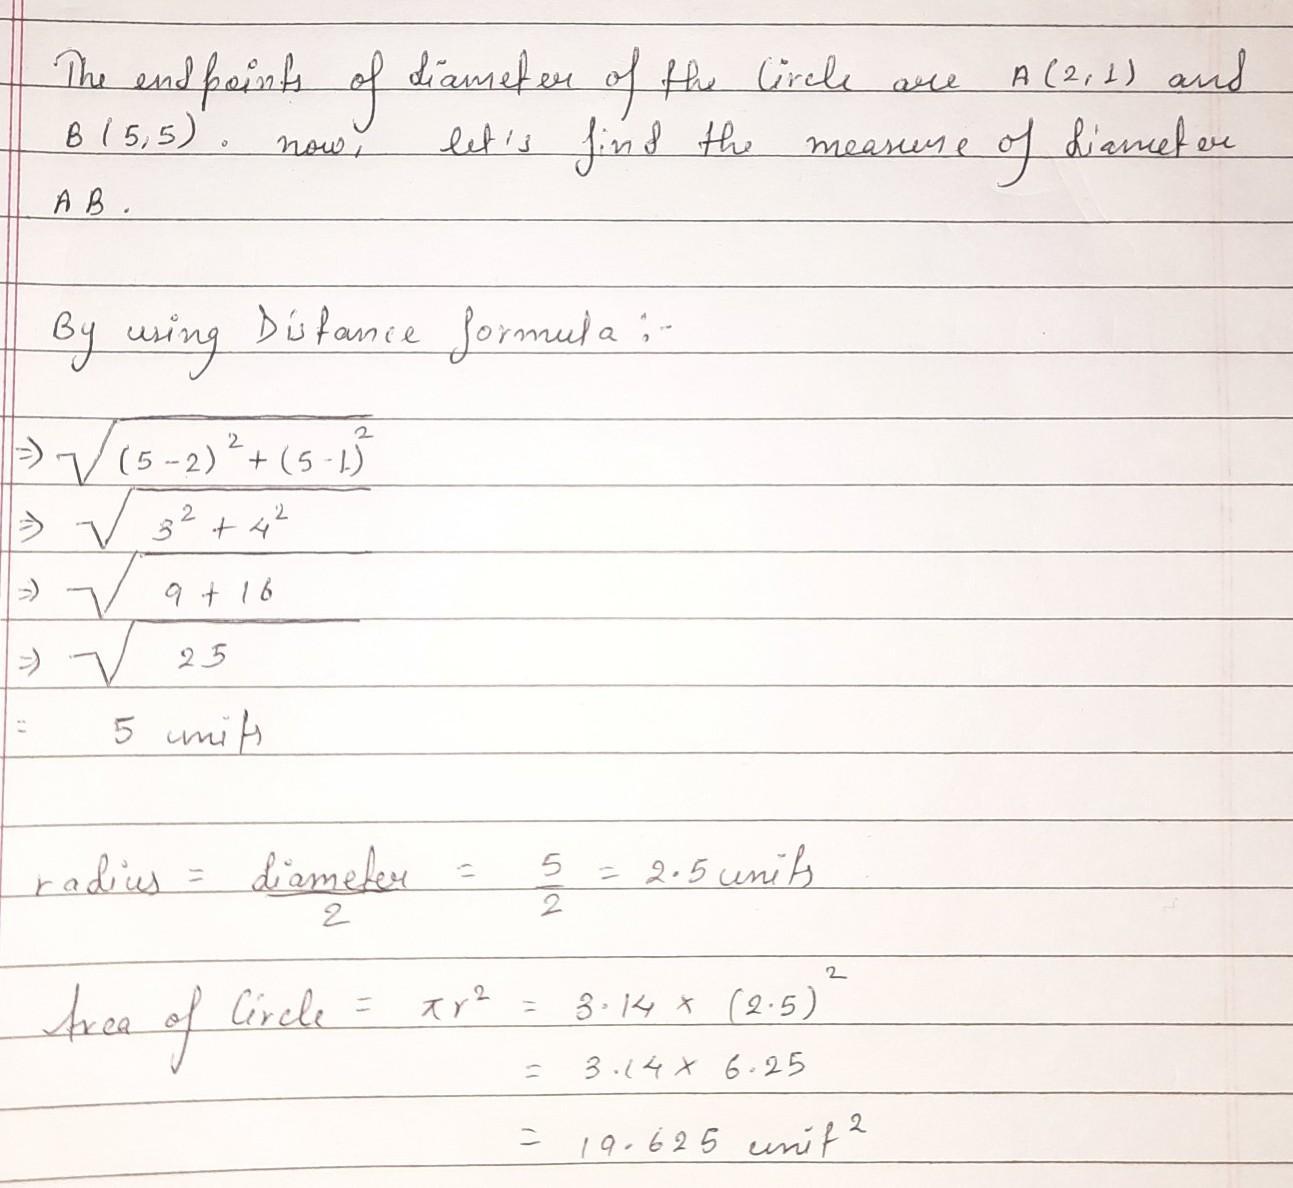 The endpoints of diameter of the Circle are A(2,1) and
B(5,5). now, let's find the measure of diameter
AB.
By using Distance formula :-
⇒ √(5-2)² + (5-1)²
⇒ √3² + 4²
⇒ √9 + 16
⇒ √25
= 5 units
radius = diameter/2 = 5/2 = 2.5 units
Area of Circle = πr² = 3.14 × (2.5)²
= 3.14 × 6.25
= 19.625 unit²